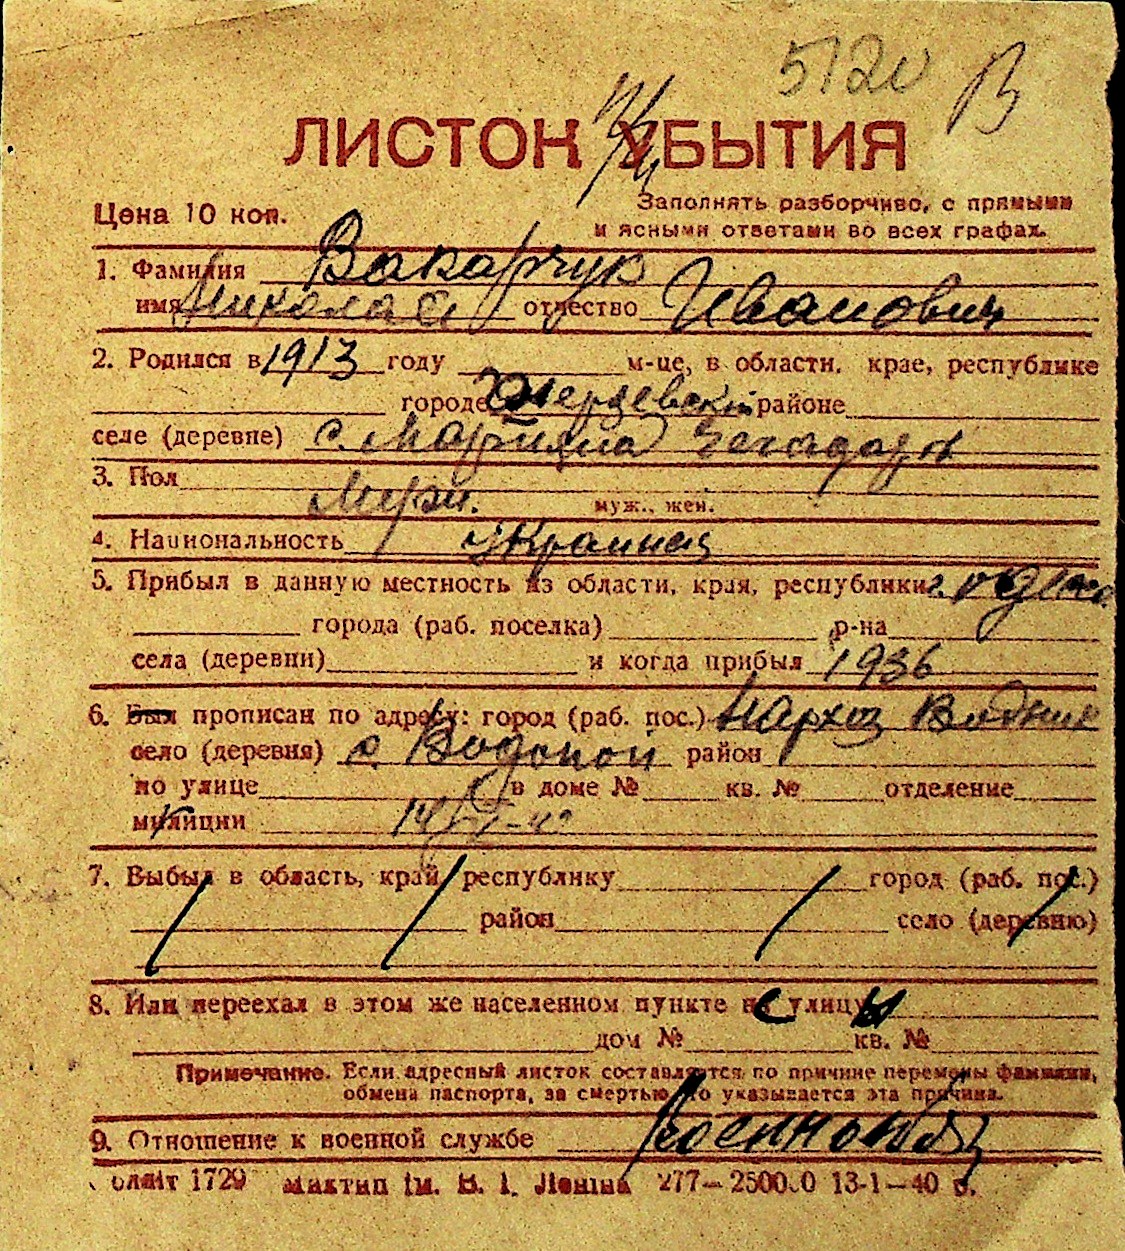 5120 В
ЛИСТОК УБЫТИЯ
Цена 10 коп.
Заполнять разборчиво, с прямыми
и ясными ответами во всех графах.
1. Фамилия Вакарчук
имя Николай отчество Иванович
2. Родился в 1913 году м-це, в области, крае, республике
городе районе
селе (деревне) с.
3. Пол
муж., жен.
4. Национальность Украинец
5. Прибыл в данную местность из области, края, республики
города (раб. поселка) р-на
села (деревни) и когда прибыл 1936
6. Был прописан по адресу: город (раб. пос.) Нархоз Водник
село (деревня) с. Водопой район
по улице в доме № кв. № отделение
милиции
7. Выбыл в область, край, республику город (раб. пос.)
район село (деревню)
8. Или переехал в этом же населенном пункте на улицу
дом № кв. №
Примечание. Если адресный листок составляется по причине перемены фамилии,
обмена паспорта, за смертью, то указывается эта причина.
9. Отношение к военной службе Военнообяз
1729 Миктип ім. В. І. Леніна 13-1—40 р.